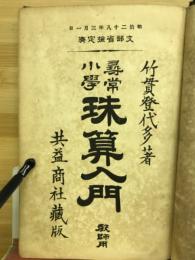 明治二十八年三月一日
文部省検定済
竹貫登代多著
尋常
小學
珠算入門
教師用
共益商社蔵版